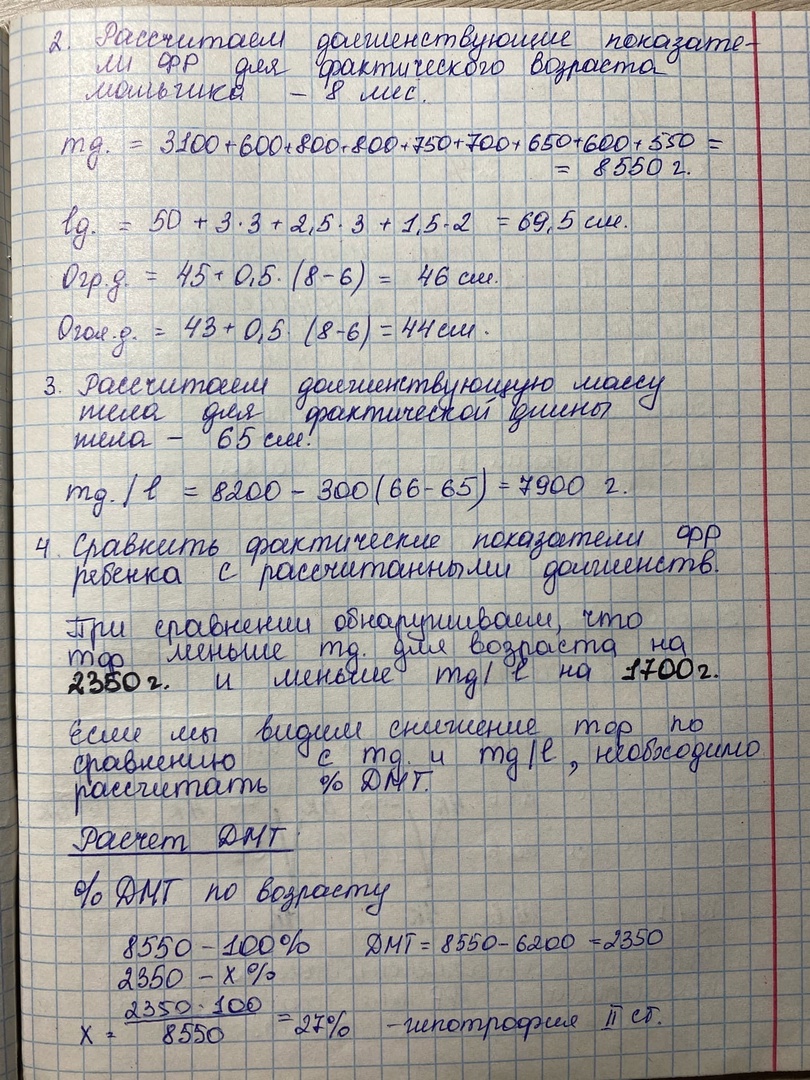 2. Рассчитаем долженствующие показате-
ли ФР для фактического возраста
мальчика – 8 мес.
mд. = 3100+600+800+800+750+700+650+600+550 =
= 8550 г.
lд. = 50 + 3·3 + 2,5·3 + 1,5·2 = 69,5 см.
Огр.д. = 45+0,5·(8-6) = 46 см.
Огол.д. = 43+0,5·(8-6) = 44 см.
3. Рассчитаем долженствующую массу
тела для фактической длины
тела – 65 см.
mд./l = 8200 – 300(66-65) = 7900 г.
4. Сравнить фактические показатели ФР
ребенка с рассчитанными долженств.
При сравнении обнаруживаем, что
mф меньше mд. для возраста на
2350 г. и меньше mд/l на 1700 г.
Если мы видим снижение mф по
сравнению с mд. и mд/l, необходимо
рассчитать % ДМТ.
Расчет ДМТ
% ДМТ по возрасту
8550 – 100% ДМТ = 8550-6200 = 2350
2350 – х%
х = 2350·100 / 8550 = 27% – гипотрофия II ст.